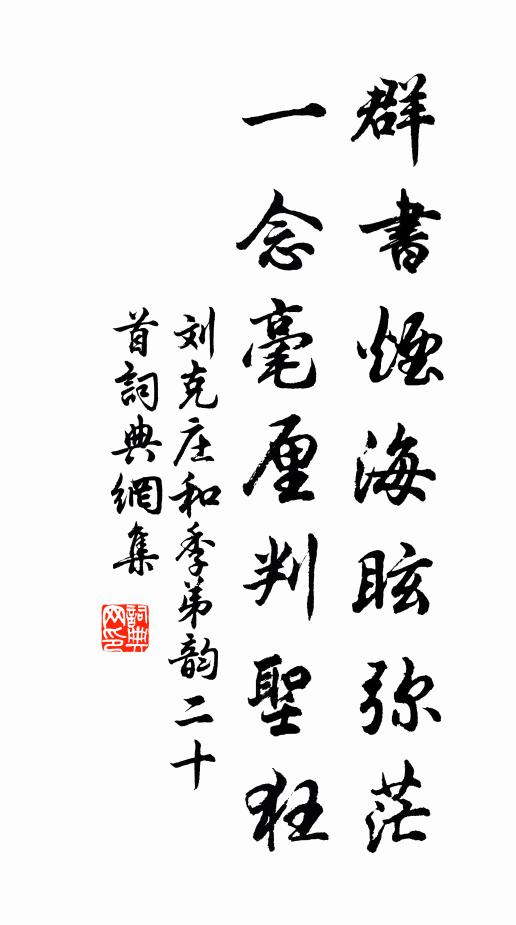 群書烟海眩弥茫
一念毫厘判聖狂
刘克庄和季弟韵二十
首詞典網集
詞典网印